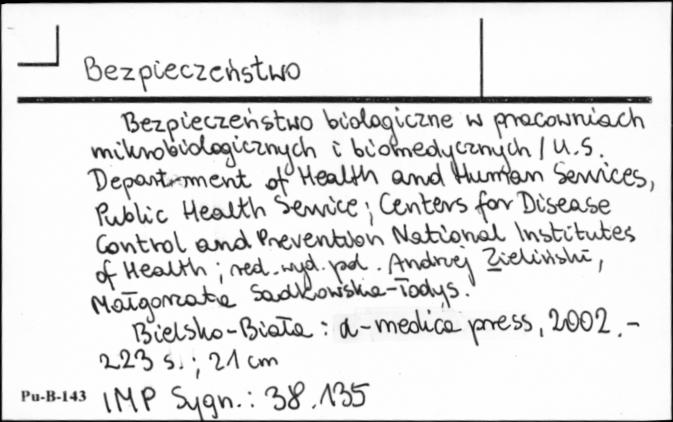 Bezpieczeństwo
Bezpieczeństwo biologiczne w pracowniach
mikrobiologicznych i biomedycznych / U.S.
Department of Health and Human Services,
Public Health Service; Centers for Disease
Control and Prevention National Institutes
of Health; red. wyd. pol. Andrzej Zieliński,
Małgorzata Sadkowska-Todys.
Bielsko-Biała : α-medica press, 2002. -
223 s. ; 21 cm
Pu-B-143 IMP Sygn.: 38.135